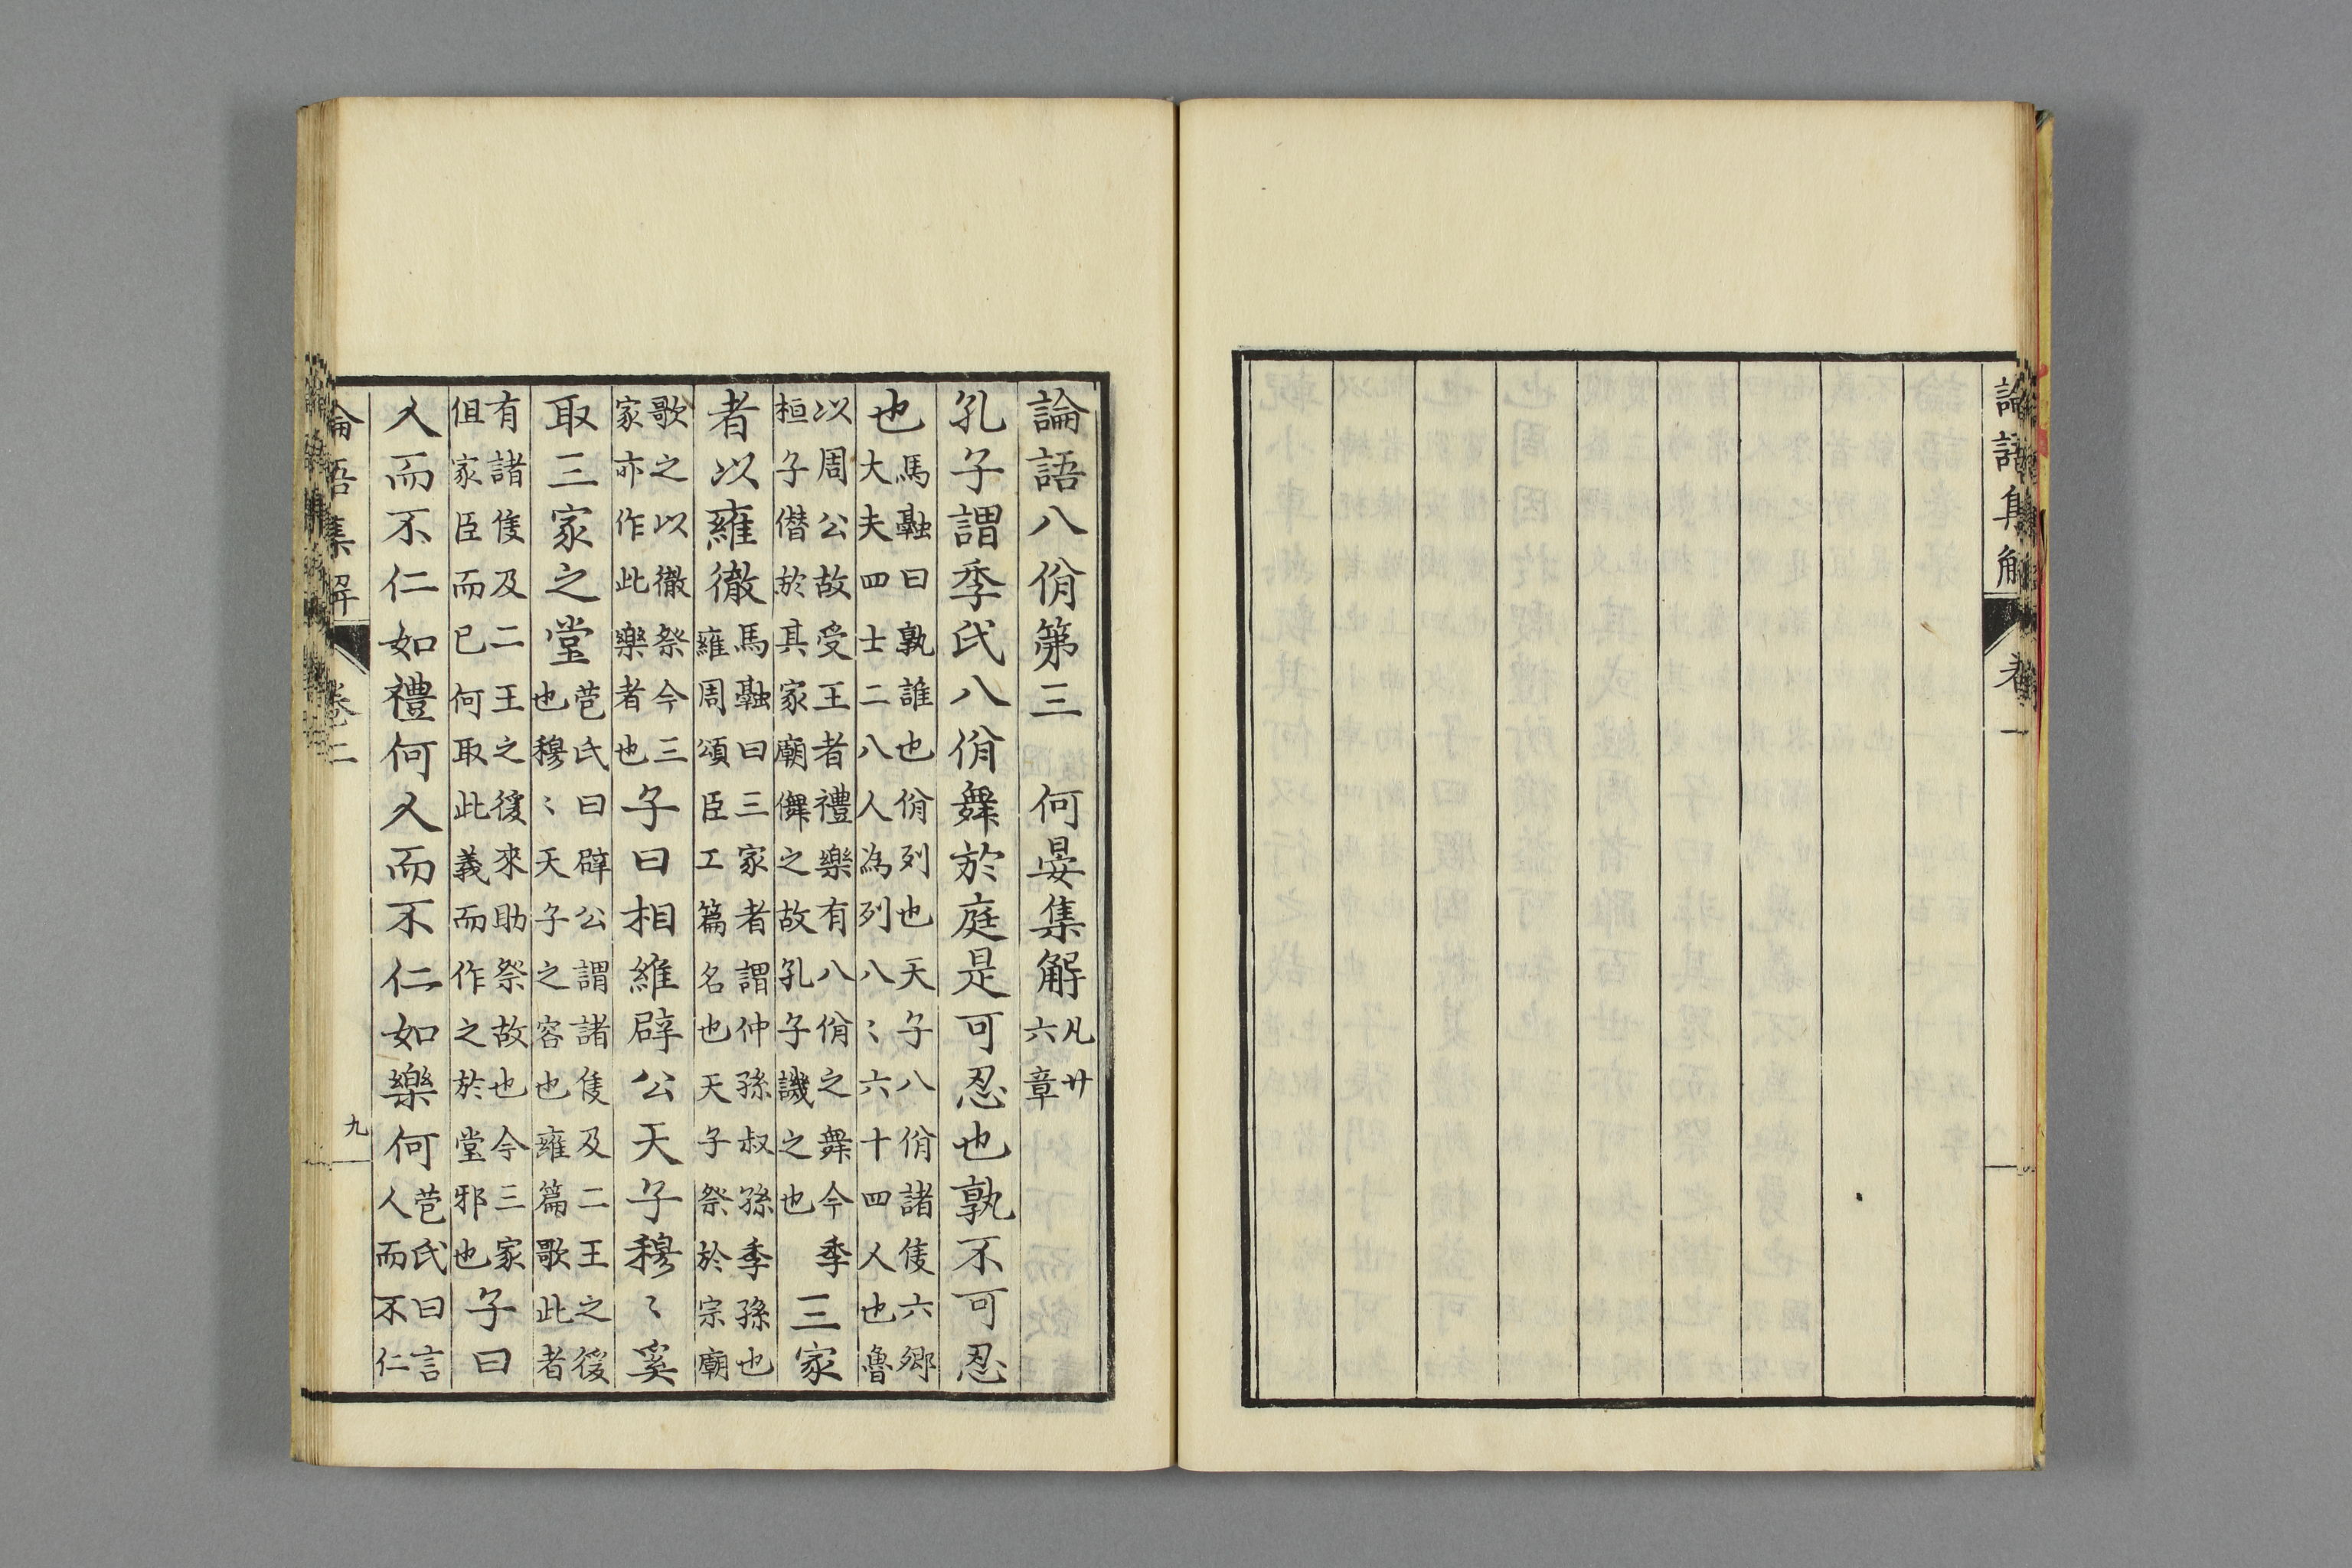 論語集解
卷一
論語八佾第三 何晏集解 凡廿
六章
孔子謂季氏八佾舞於庭是可忍也孰不可忍
也
馬融曰孰誰也佾列也天子八佾諸侯六卿
大夫四士二八人為列八〻六十四人也魯
以周公故受王者禮樂有八佾之舞今季
桓子僭於其家廟儛之故孔子譏之也
三家
者以雍徹
馬融曰三家者謂仲孫叔孫季孫也
雍周頌臣工篇名也天子祭於宗廟
歌之以徹祭今三
家亦作此樂者也
子曰相維辟公天子穆〻奚
取三家之堂
苞氏曰辟公謂諸侯及二王之後
也穆〻天子之容也雍篇歌此者
有諸侯及二王之後來助祭故也今三家
但家臣而已何取此義而作之於堂邪也
子曰
人而不仁如禮何人而不仁如樂何
苞氏曰言
人而不仁
論語集解
卷二
九